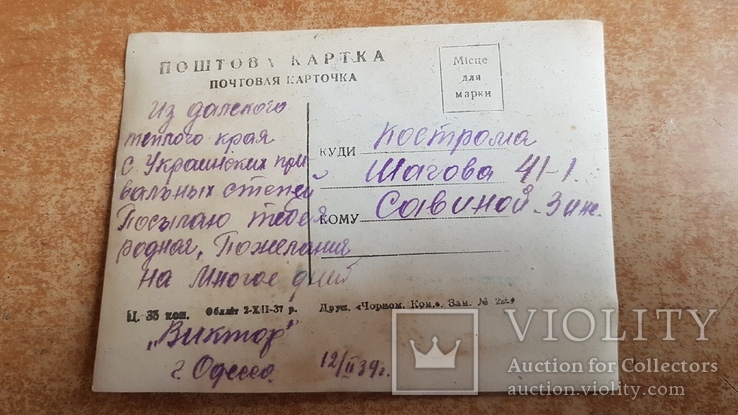 ПОШТОВА КАРТКА
ПОЧТОВАЯ КАРТОЧКА
Місце
для
марки
Из далекого
теплого края
с Украинских при-
вальных степей
Посылаю тебе
родная, Пожелания
на многое дней
КУДИ Кострома
Шагова 41-1.
КОМУ Савиной Зин.
Ц. 35 коп. Обліт 2-XII-37 р. Друк. «Чорном. Ком.» Зам. №
„Виктор"
г. Одесса. 12/II 39г.
VIOLITY
Auction for Collectors
auction.violity.com